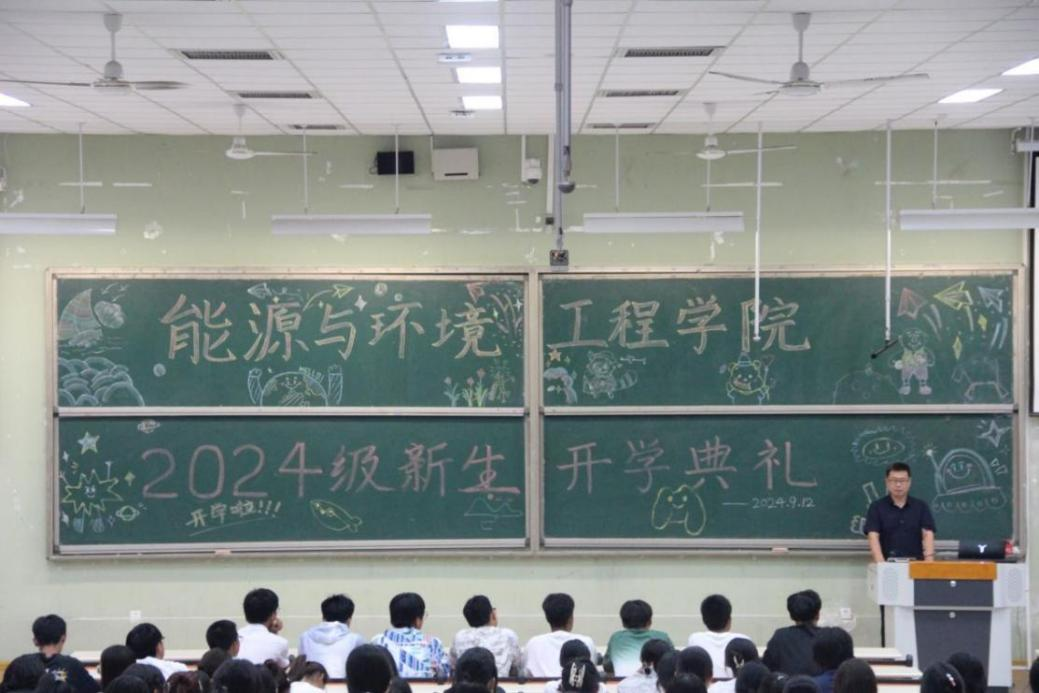 能源与环境工程学院
2024级新生开学典礼
开学啦!!!
——2024.9.12